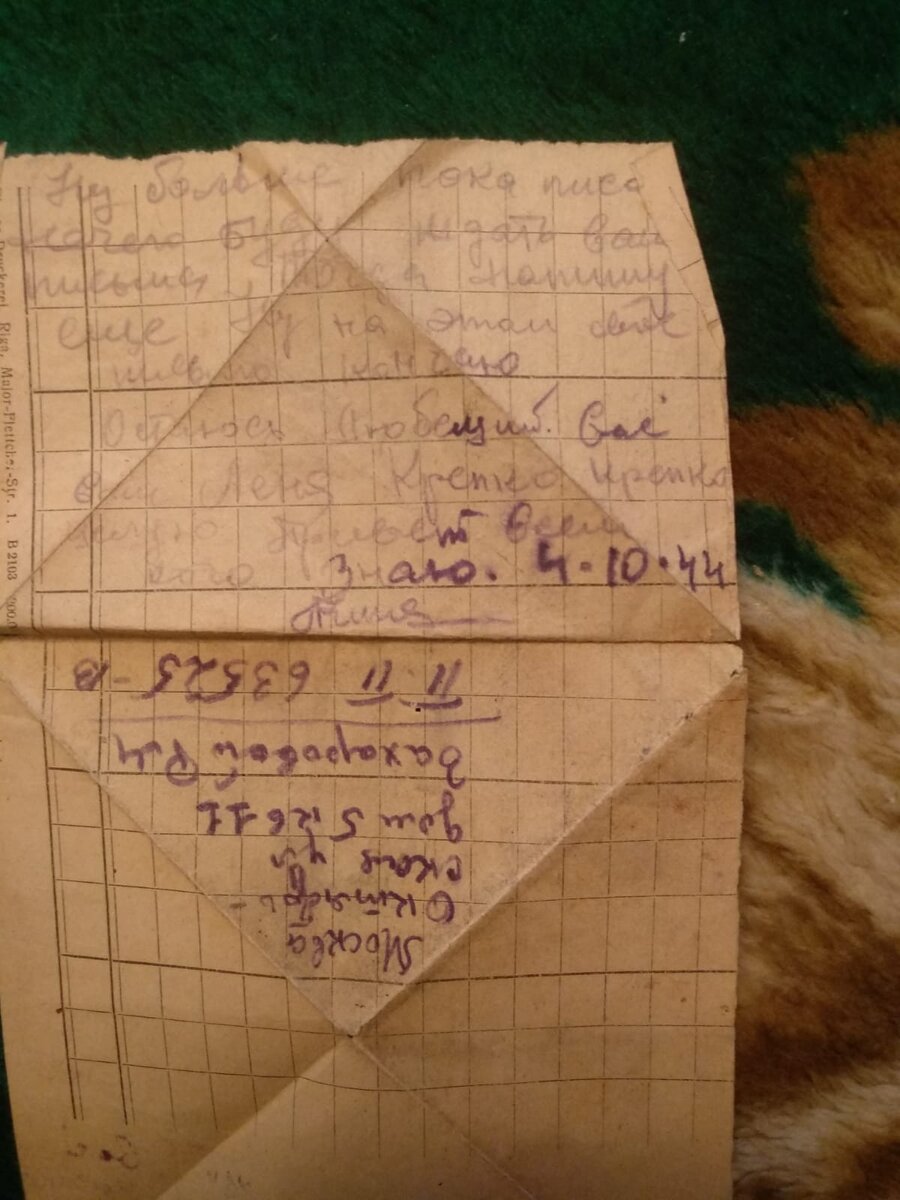 Ну больше пока писа
нечего буду ждать ваш
письма, пока напишу
еще Ну на этом свое
письмо кончаю
Остаюсь Любещий Вас
Леня Крепко крепко
целую Привет всем
кого Знаю. 4.10.44
Москва
Октябрь-
ская ул
дом 5 кв 11
Захаровой Р.И
П П 63525-В
Riga, Major-Plettche.-Str. 1. B 2103